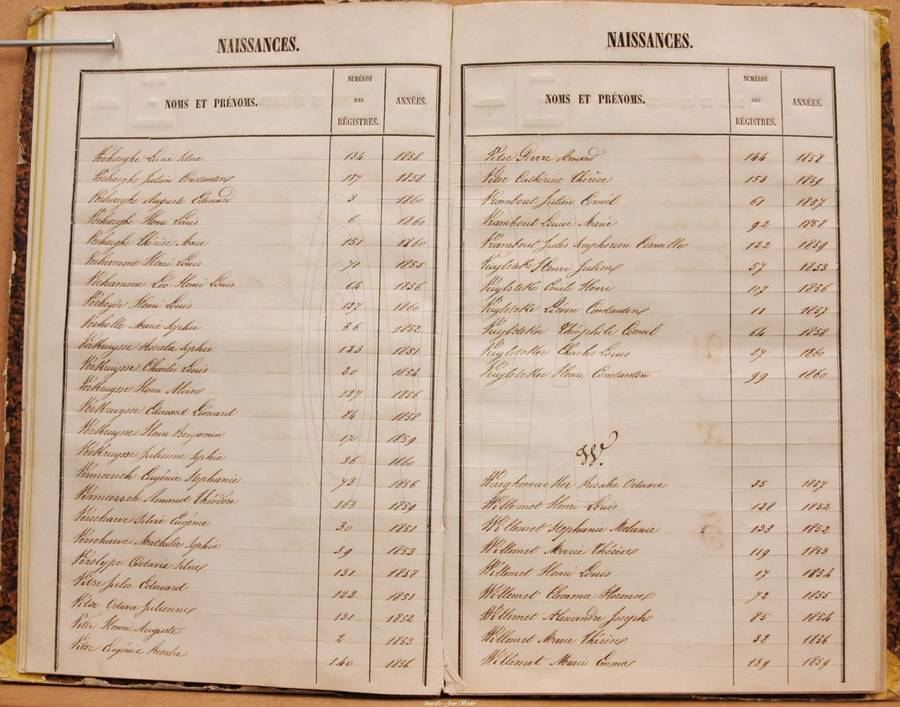 NAISSANCES.
NOMS ET PRÉNOMS. NUMÉROS DES RÉGISTRES. ANNÉES.
Verhaeghe Silvie 134 1858
Verhaeghe Julien Constantin 137 1858
Verhaeghe Auguste Edouard 3 1860
Verhaeghe Henri Louis 6 1860
Verhaeghe Thérèse Marie 151 1860
Verhamme Henri Louis 71 1855
Verhamme Leo Henri Louis 64 1856
Henri Louis 137 1860
Verhelle Marie Sophie 36 1852
VerKruysse Rosalie Sophie 123 1851
VerKruysse Charles Louis 20 1854
VerKruysse Henri Aloise 127 1856
VerKruysse Edouard Léonard 84 1858
VerKruysse Henri Benjamin 1859
VerKruysse Julienne Sophie 36 1860
Vermeersch Eugénie Stephanie 73 1856
Vermeersch Amand Théodore 163 1859
Verschaeve Silvie Eugénie 30 1851
Verschaeve Mathilde Sophie 39 1853
Verslype Octavie Silvie 131 1858
Vitse Jules Edouard 122 1851
Vitse Octavie Julienne 131 1852
Vitse Henri Auguste 2 1855
Vitse Eugénie Rosalie 140 1856
NAISSANCES.
NOMS ET PRÉNOMS. NUMÉROS DES RÉGISTRES. ANNÉES.
Vitse Pierre Amand 144 1858
Vitse Cathérine Thérèse 153 1859
Vrambout Julien Cornéil 61 1857
Vrambout Louise Marie 92 1858
Vrambout Jules Symphorien Corneille 122 1859
Vuylsteke Henri Julien 57 1853
Vuylsteke Emile Henri 107 1856
Vuylsteke Constantin 11 1857
Vuylsteke Théophile Corneil 64 1858
Vuylsteke Charles Louis 27 1860
Vuylsteke Henri Constantin 99 1860
W.
Rosalie Octavie 35 1857
Willemet Henri Louis 128 1852
Willemet Stephanie Melanie 133 1852
Willemet Marie Thérèse 119 1853
Willemet Henri Louis 17 1854
Willemet Clemence Florence 72 1855
Willemet Alexandre Joseph 85 1854
Willemet Marie Thérèse 32 1856
Willemet Marie Emma 139 1859